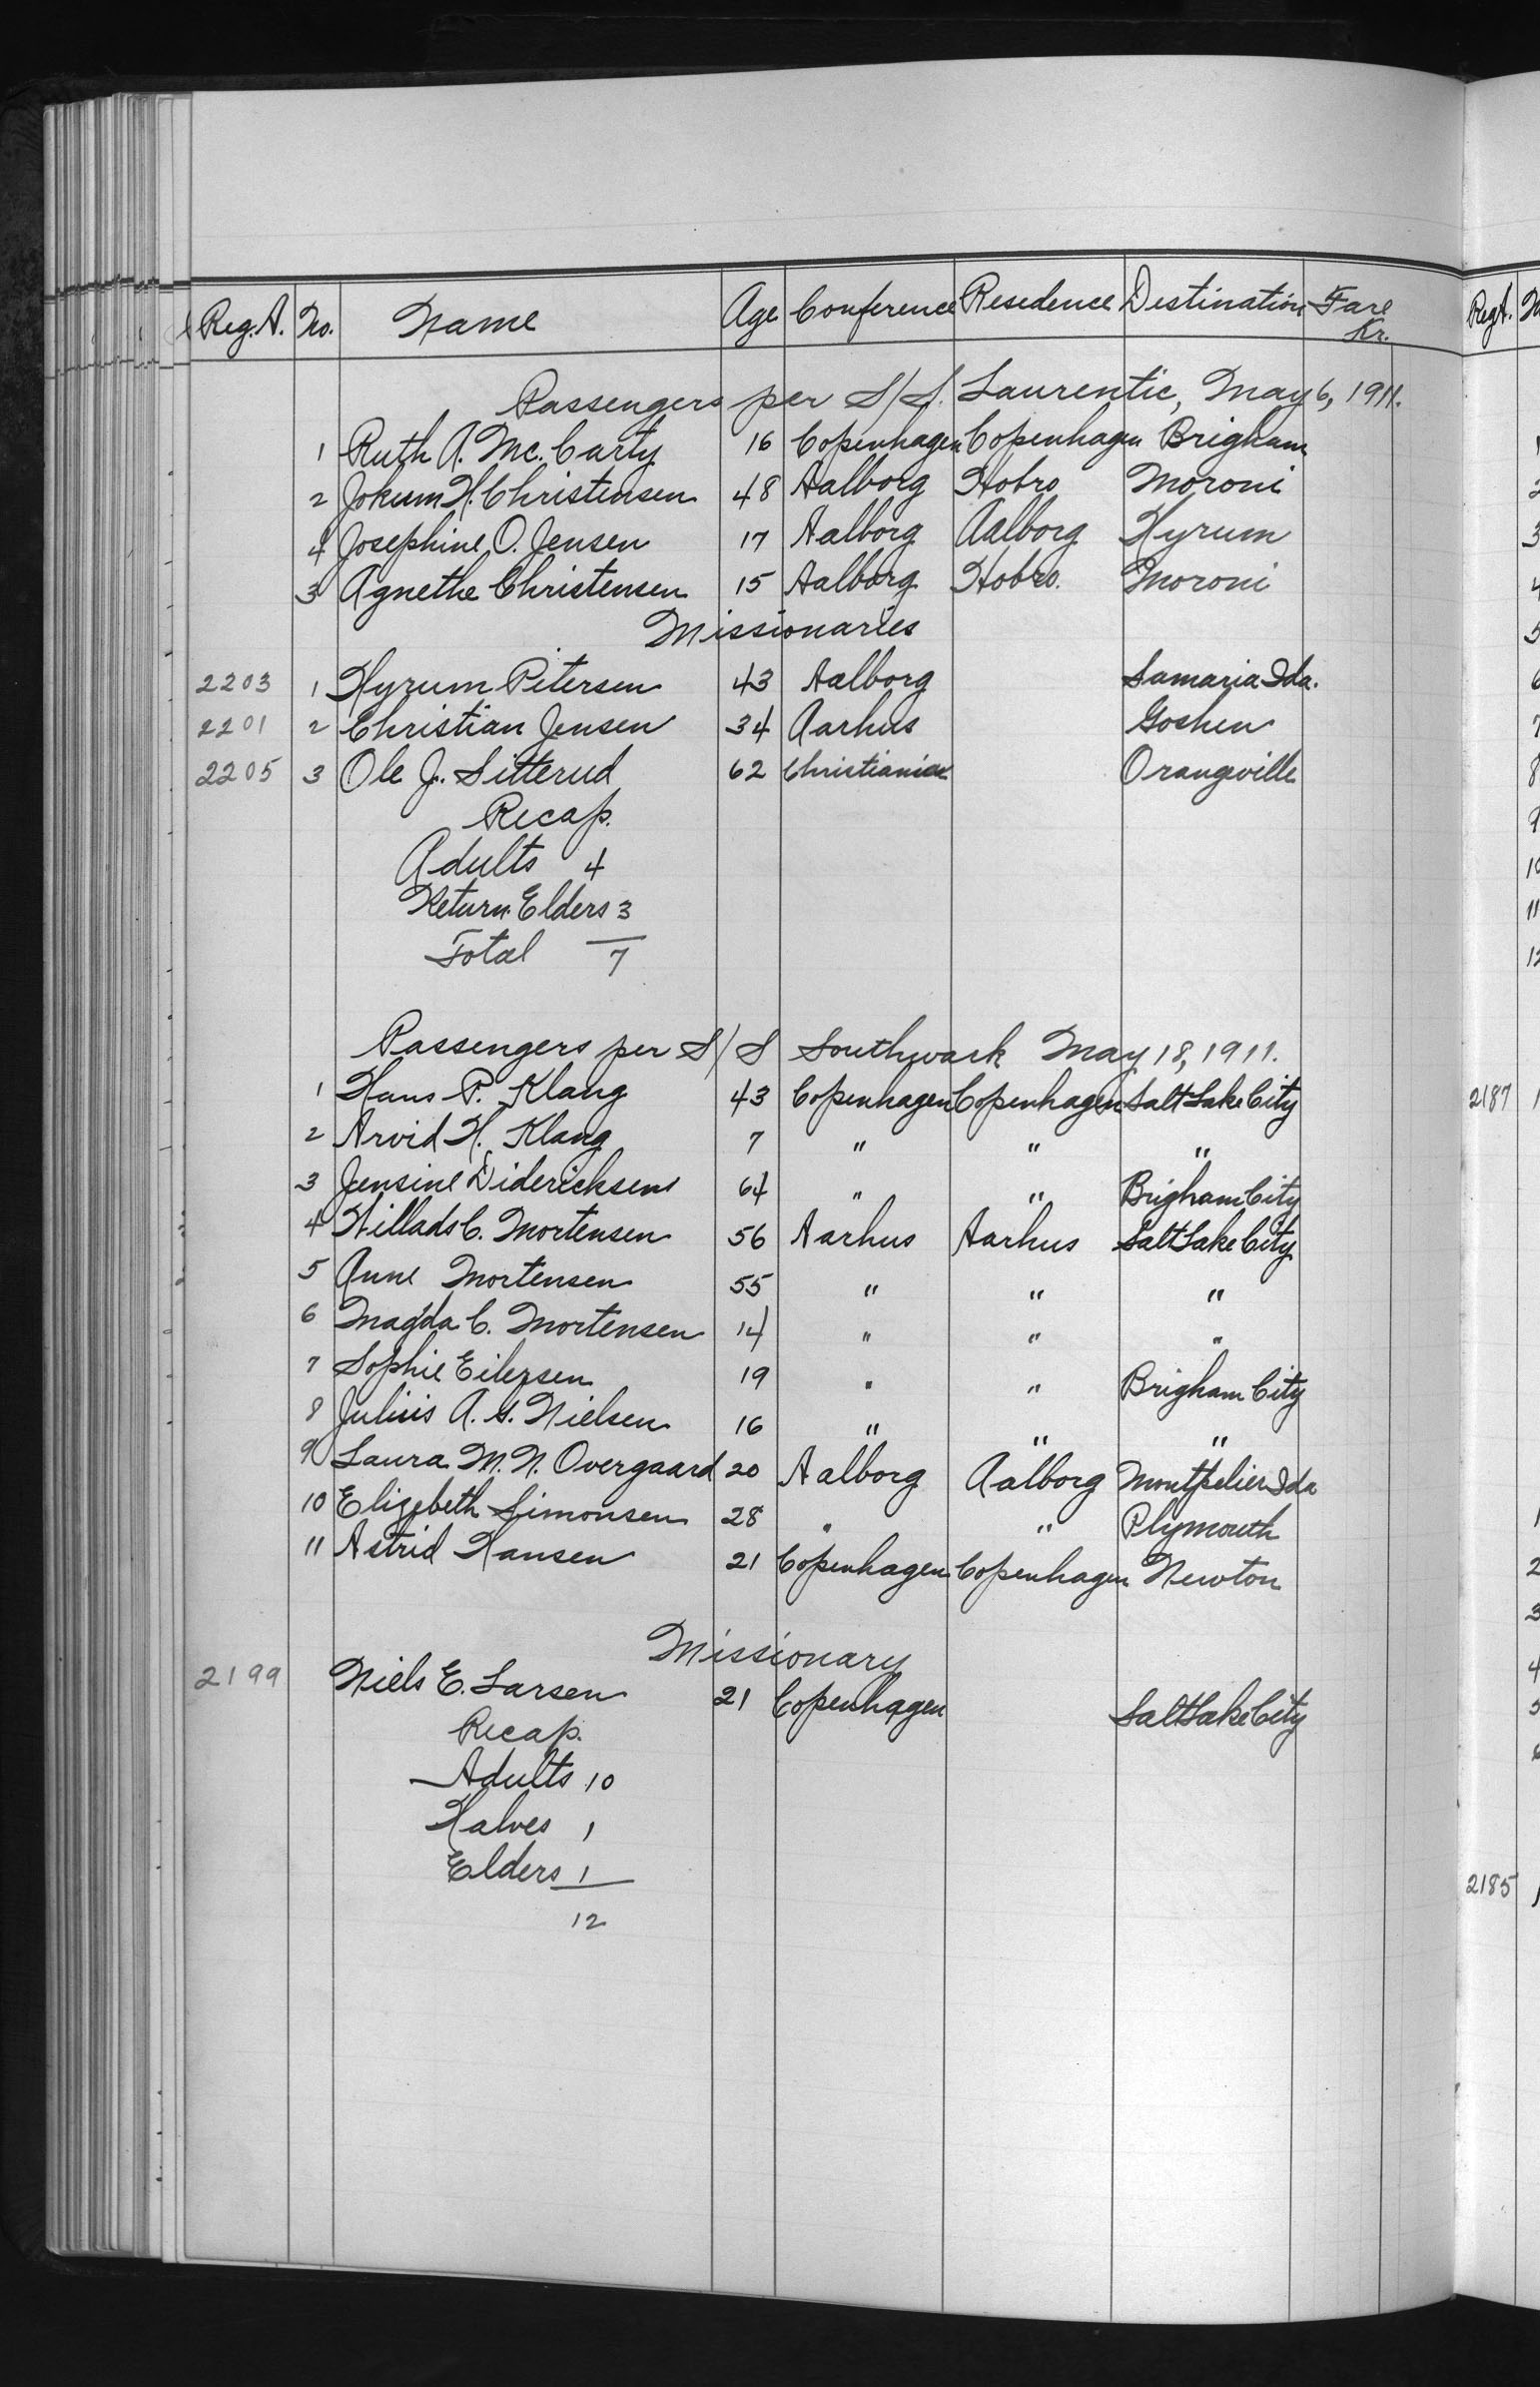 Reg. A. No. Name Age Conference Resedence Destination Fare Kr.
Passengers per S/S. Laurentic, May 6, 1911.
1 Ruth A. Mc. Carty 16 Copenhagen Copenhagen Brigham
2 Jokum H. Christensen 48 Aalborg Hobro Moroni
4 Josephine O. Jensen 17 Aalborg Aalborg Hyrum
3 Agnethe Christensen 15 Aalborg Hobro. Moroni
Missionaries
2203 1 Hyrum Petersen 43 Aalborg Samaria Ida.
2201 2 Christian Jensen 34 Aarhus Goshen
2205 3 Ole J. Sitterud 62 Christiania Orangeville
Recap.
Adults 4
Return Elders 3
Total 7
Passengers per S/S Southwark May 18, 1911.
1 Hans P. Klang 43 Copenhagen Copenhagen Salt Lake City
2 Arvid H. Klang 7 " " "
3 Jensine Didericksen 64 " " Brigham City
4 Willads C. Mortensen 56 Aarhus Aarhus Salt Lake City
5 Anne Mortensen 55 " " "
6 Magda C. Mortensen 14 " " "
7 Sophie Eilersen 19 " " Brigham City
8 Julius A. S. Nielsen 16 " " "
9 Laura M. N. Overgaard 20 Aalborg Aalborg Montpelier Ida
10 Elizebeth Simonsen 28 " " Plymouth
11 Astrid Hansen 21 Copenhagen Copenhagen Newton
Missionary
2199 Niels E. Larsen 21 Copenhagen Salt Lake City
Recap.
Adults 10
Halves 1
Elders 1
12
Reg A.
3
4
5
7
8
9
10
11
12
2187 1
1
2
3
4
5
6
2185 1